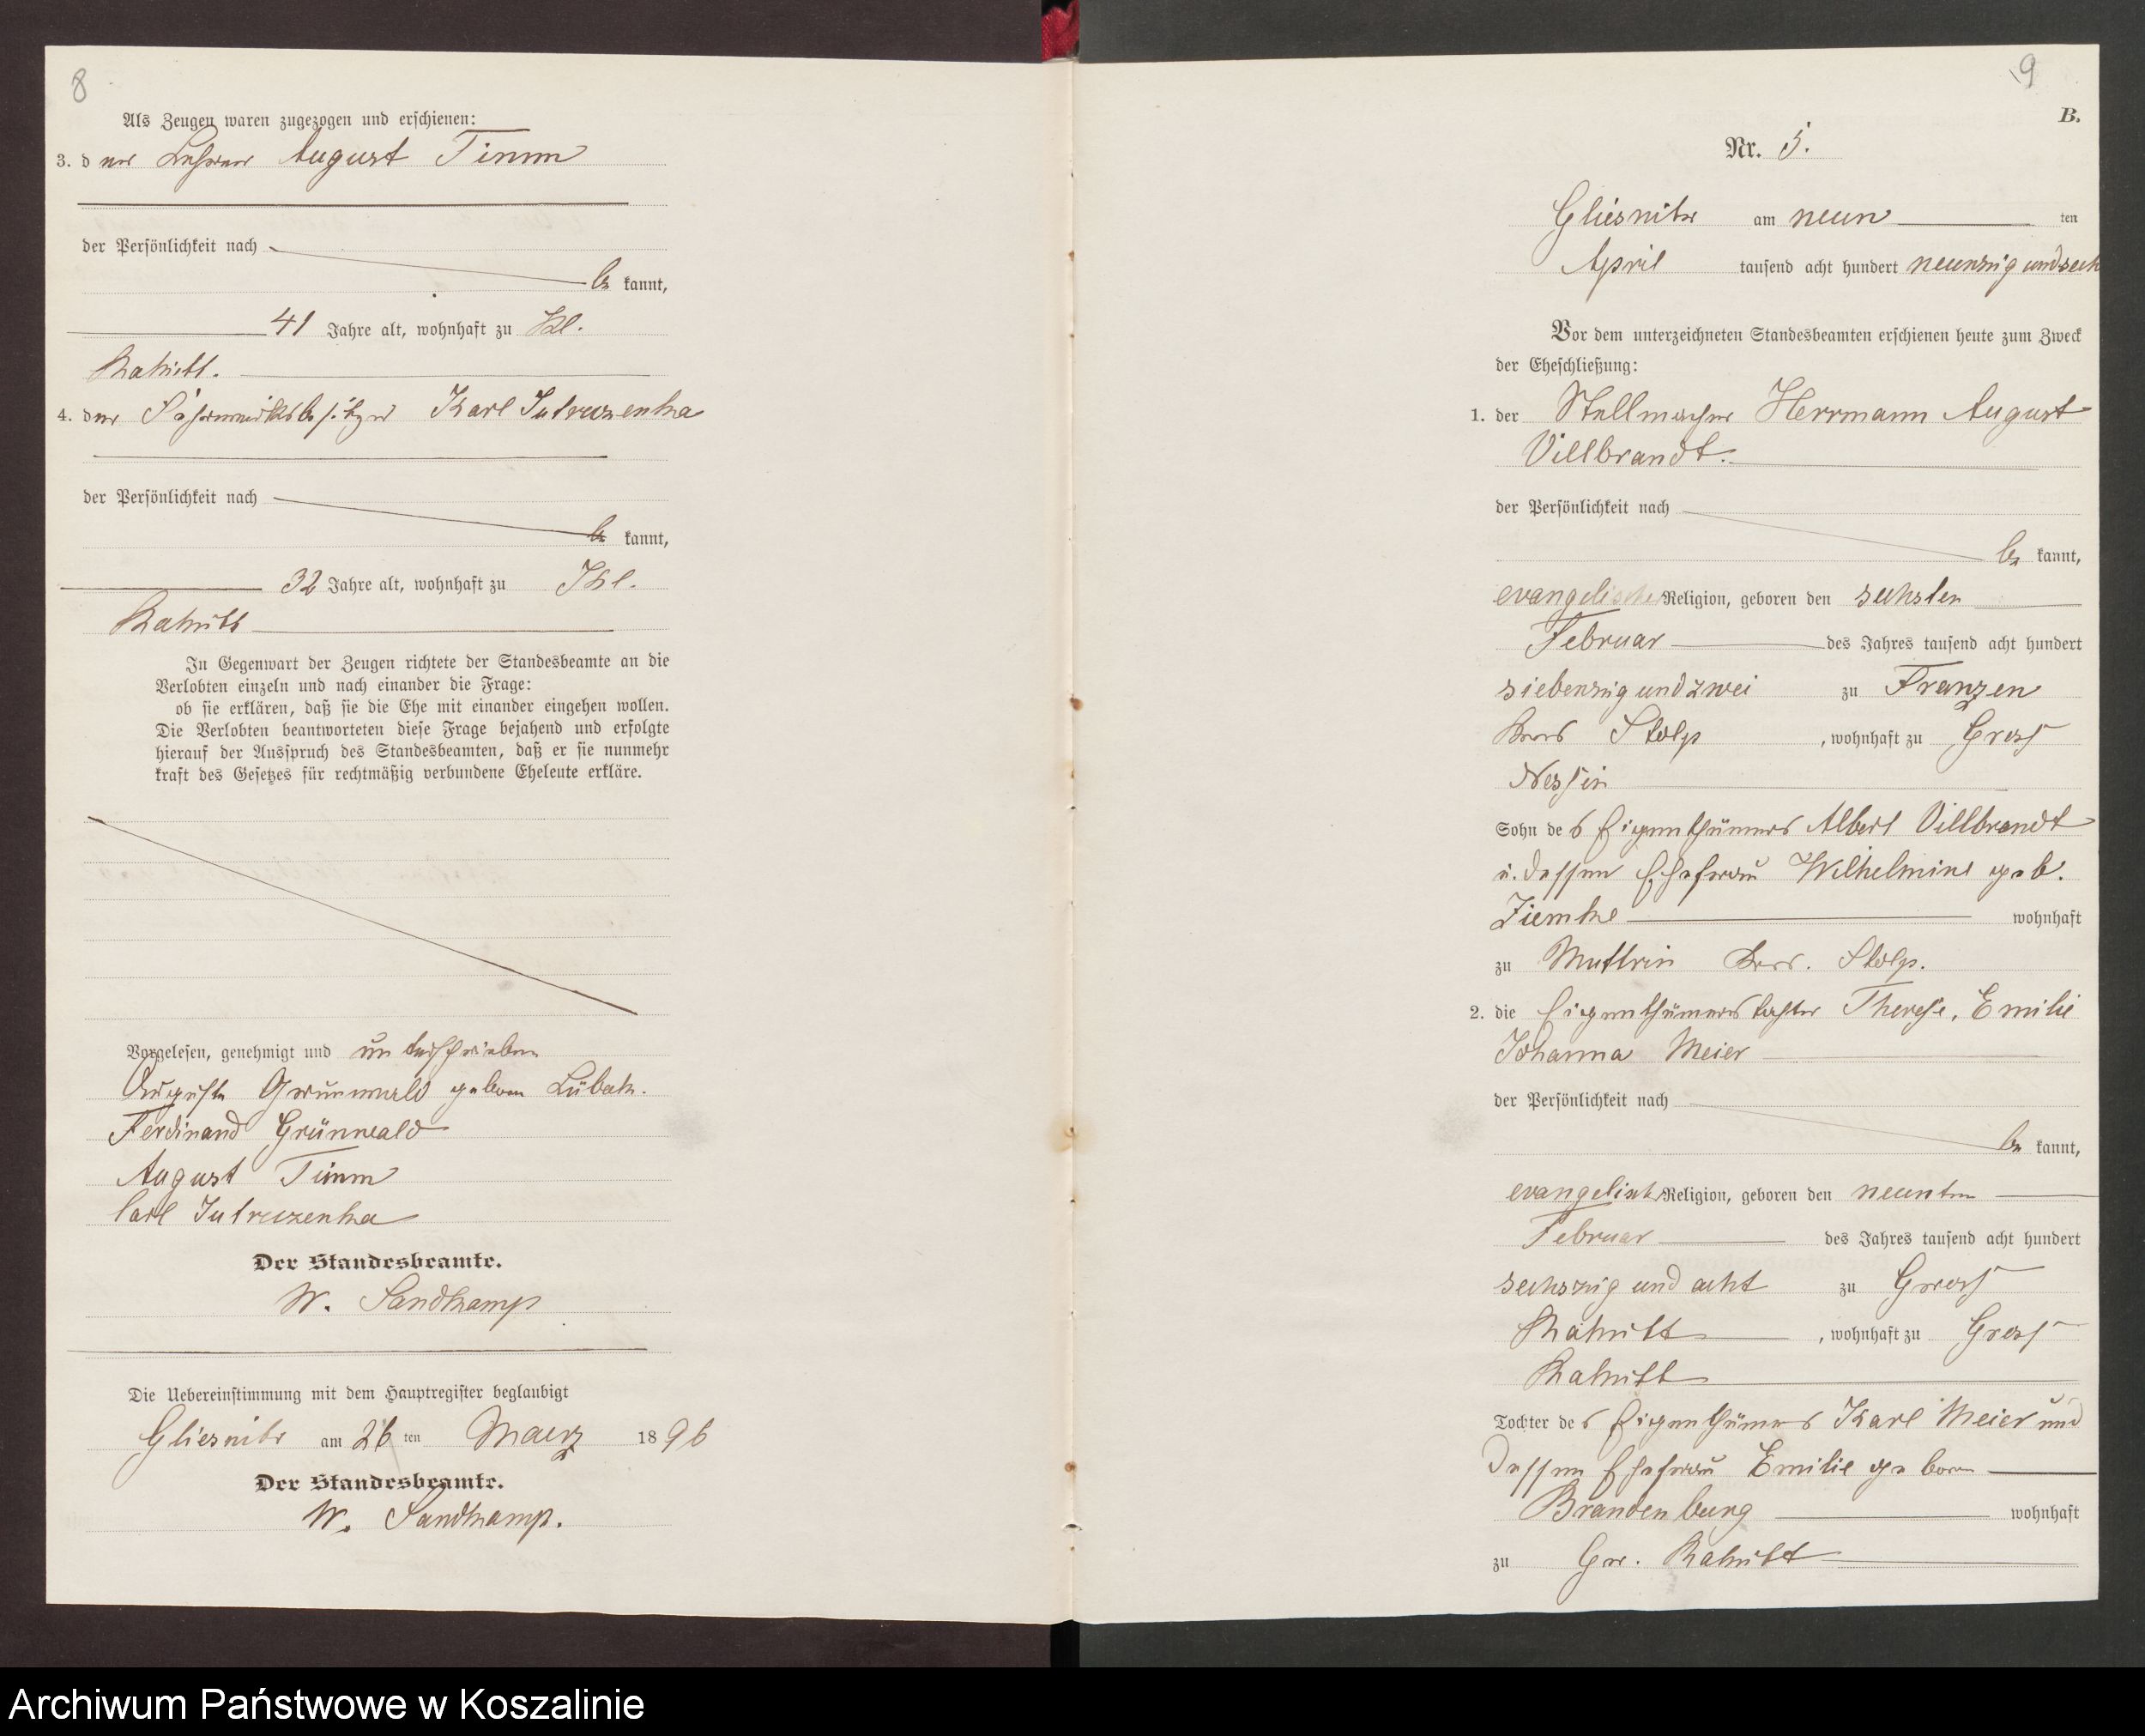 8
Als Zeugen waren zugezogen und erschienen:
3. der Lehrer August Timm
der Persönlichkeit nach
be kannt,
41 Jahre alt, wohnhaft zu Kl.
Rakitt.
4. der Karl Jutrzenka
der Persönlichkeit nach
be kannt,
32 Jahre alt, wohnhaft zu Kl.
Rakitt
In Gegenwart der Zeugen richtete der Standesbeamte an die
Verlobten einzeln und nach einander die Frage:
ob sie erklären, daß sie die Ehe mit einander eingehen wollen.
Die Verlobten beantworteten diese Frage bejahend und erfolgte
hierauf der Ausspruch des Standesbeamten, daß er sie nunmehr
kraft des Gesetzes für rechtmäßig verbundene Eheleute erkläre.
Vorgelesen, genehmigt und unterschrieben
Auguste Grünwald geboren
Ferdinand Grünwald
August Timm
Carl Jutrzenka
Der Standesbeamte.
W. Sandkamp
Die Uebereinstimmung mit dem Hauptregister beglaubigt
Gliesnitz am 26 ten Maerz 18 96
Der Standesbeamte.
W. Sandkamp.
9
B.
Nr. 5.
Gliesnitz am neun ten
April tausend acht hundert neunzig und sech
Vor dem unterzeichneten Standesbeamten erschienen heute zum Zweck
der Eheschließung:
1. der Stellmacher Herrmann August
Villbrandt.
der Persönlichkeit nach
be kannt,
evangelischer Religion, geboren den sechsten
Februar des Jahres tausend acht hundert
siebenzig und zwei zu Franzen
Kreis Stolp , wohnhaft zu Gross
Nessin
Sohn des Eigenthümers Albert Villbrandt
u. dessen Ehefrau Wilhelmine geb.
Ziemke wohnhaft
zu Muttrin Kreis. Stolp.
2. die Eigenthümerstochter Therese, Emilie
Johanna Meier
der Persönlichkeit nach
be kannt,
evangelisch Religion, geboren den neunten
Februar des Jahres tausend acht hundert
sechszig und acht zu Gross
Rakitt , wohnhaft zu Gross
Rakitt
Tochter des Eigenthümers Karl Meier und
dessen Ehefrau Emilie geboren
Brandenburg wohnhaft
zu Gr. Rakitt
Archiwum Państwowe w Koszalinie